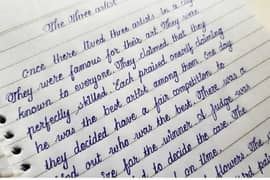 The Three artist
Once there lived three artists in a city
They were famous for their art. They were
known to everyone. They claimed that they
perfectly skilled. Each praised oneself claiming
he was the best artist among them. One day
they decided have a fair competition to
find out who was the best. There was a
for the winner. A judge was
to decide the case. The
on time.
flowers. The